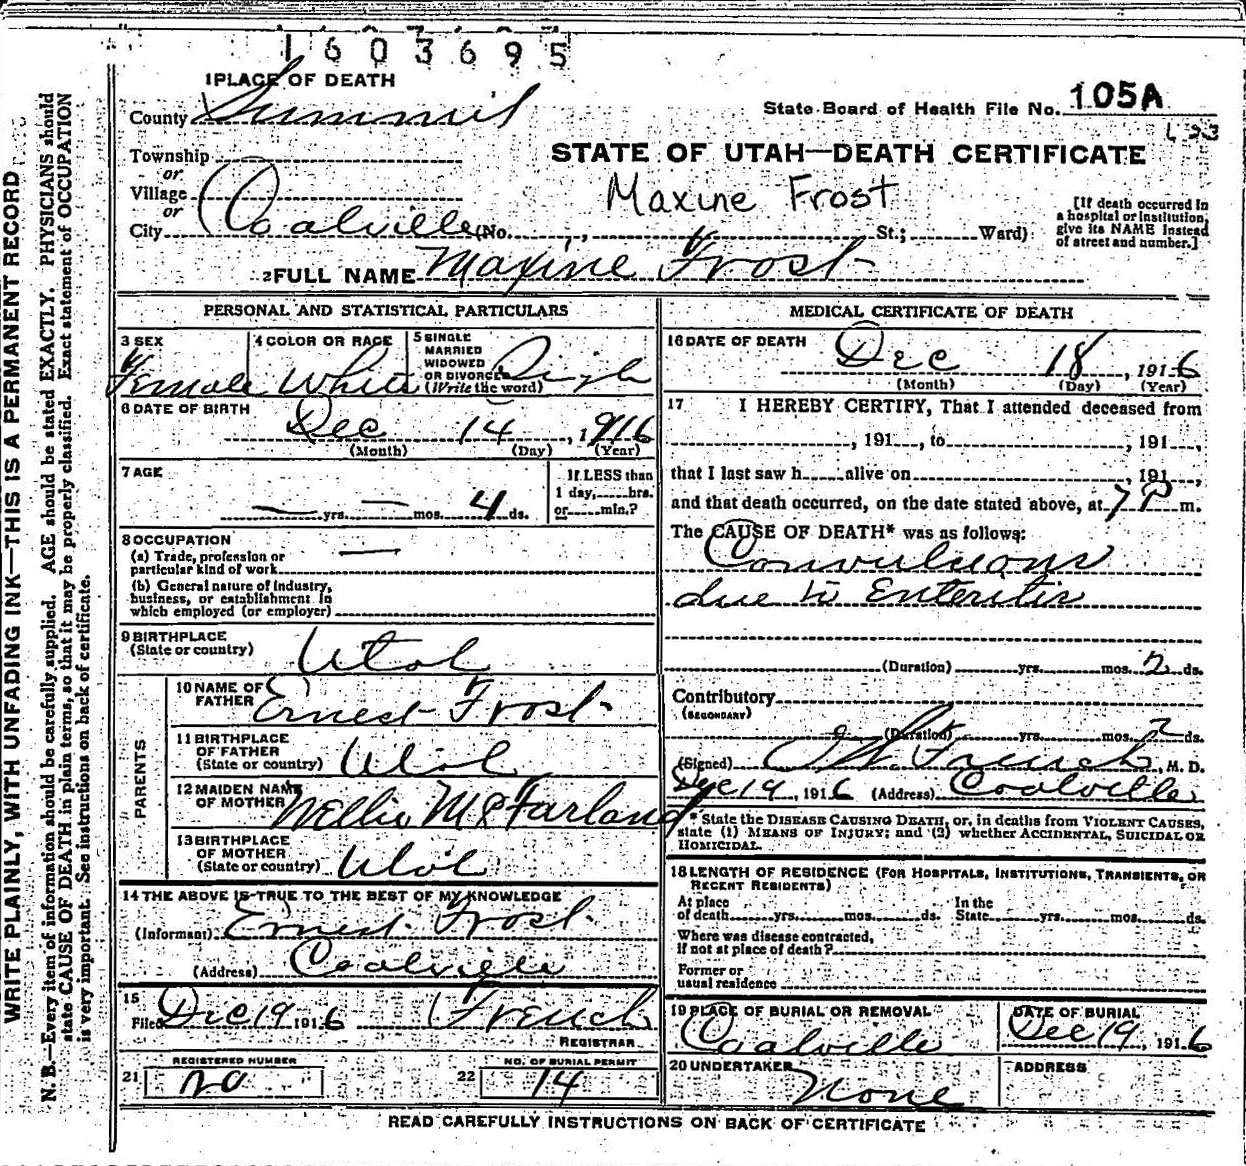 1603695
1 PLACE OF DEATH
State Board of Health File No. 105A
County Summit
Township
or
Village
or
City Coalville (No. , , St.; Ward)
STATE OF UTAH—DEATH CERTIFICATE
Maxine Frost
[If death occurred in
a hospital or institution,
give its NAME instead
of street and number.]
2 FULL NAME Maxine Frost
PERSONAL AND STATISTICAL PARTICULARS
3 SEX
Female
4 COLOR OR RACE
White
5 SINGLE
MARRIED
WIDOWED
OR DIVORCED
(Write the word)
Single
6 DATE OF BIRTH
Dec 14, 1916
(Month) (Day) (Year)
7 AGE
— yrs. — mos. 4 ds.
If LESS than
1 day, hrs.
or min.?
8 OCCUPATION
(a) Trade, profession or
particular kind of work —
(b) General nature of industry,
business, or establishment in
which employed (or employer)
9 BIRTHPLACE
(State or country) Utah
PARENTS
10 NAME OF
FATHER Ernest Frost
11 BIRTHPLACE
OF FATHER
(State or country) Utah
12 MAIDEN NAME
OF MOTHER Nellie McFarland
13 BIRTHPLACE
OF MOTHER
(State or country) Utah
14 THE ABOVE IS TRUE TO THE BEST OF MY KNOWLEDGE
(Informant) Ernest Frost
(Address) Coalville
15
Filed Dec 19 1916 French
REGISTRAR
REGISTERED NUMBER
21 20
NO. OF BURIAL PERMIT
22 14
MEDICAL CERTIFICATE OF DEATH
16 DATE OF DEATH
Dec 18, 1916
(Month) (Day) (Year)
17 I HEREBY CERTIFY, That I attended deceased from
, 191 , to , 191 ,
that I last saw h alive on , 191 ,
and that death occurred, on the date stated above, at 7 P m.
The CAUSE OF DEATH* was as follows:
Convulsions
due to Enteritis
(Duration) yrs. mos. 2 ds.
Contributory
(SECONDARY)
(Duration) yrs. mos. 2 ds.
(Signed) French, M. D.
Dec 19, 1916 (Address) Coalville
* State the DISEASE CAUSING DEATH, or, in deaths from VIOLENT CAUSES,
state (1) MEANS OF INJURY; and (2) whether ACCIDENTAL, SUICIDAL OR
HOMICIDAL.
18 LENGTH OF RESIDENCE (FOR HOSPITALS, INSTITUTIONS, TRANSIENTS, OR
RECENT RESIDENTS)
At place
of death yrs. mos. ds.
In the
State yrs. mos. ds.
Where was disease contracted,
if not at place of death?
Former or
usual residence
19 PLACE OF BURIAL OR REMOVAL
Coalville
DATE OF BURIAL
Dec 19, 1916
20 UNDERTAKER
None
ADDRESS
READ CAREFULLY INSTRUCTIONS ON BACK OF CERTIFICATE
WRITE PLAINLY, WITH UNFADING INK—THIS IS A PERMANENT RECORD
N. B.—Every item of information should be carefully supplied. AGE should be stated EXACTLY. PHYSICIANS should
state CAUSE OF DEATH in plain terms, so that it may be properly classified. Exact statement of OCCUPATION
is very important. See instructions on back of certificate.